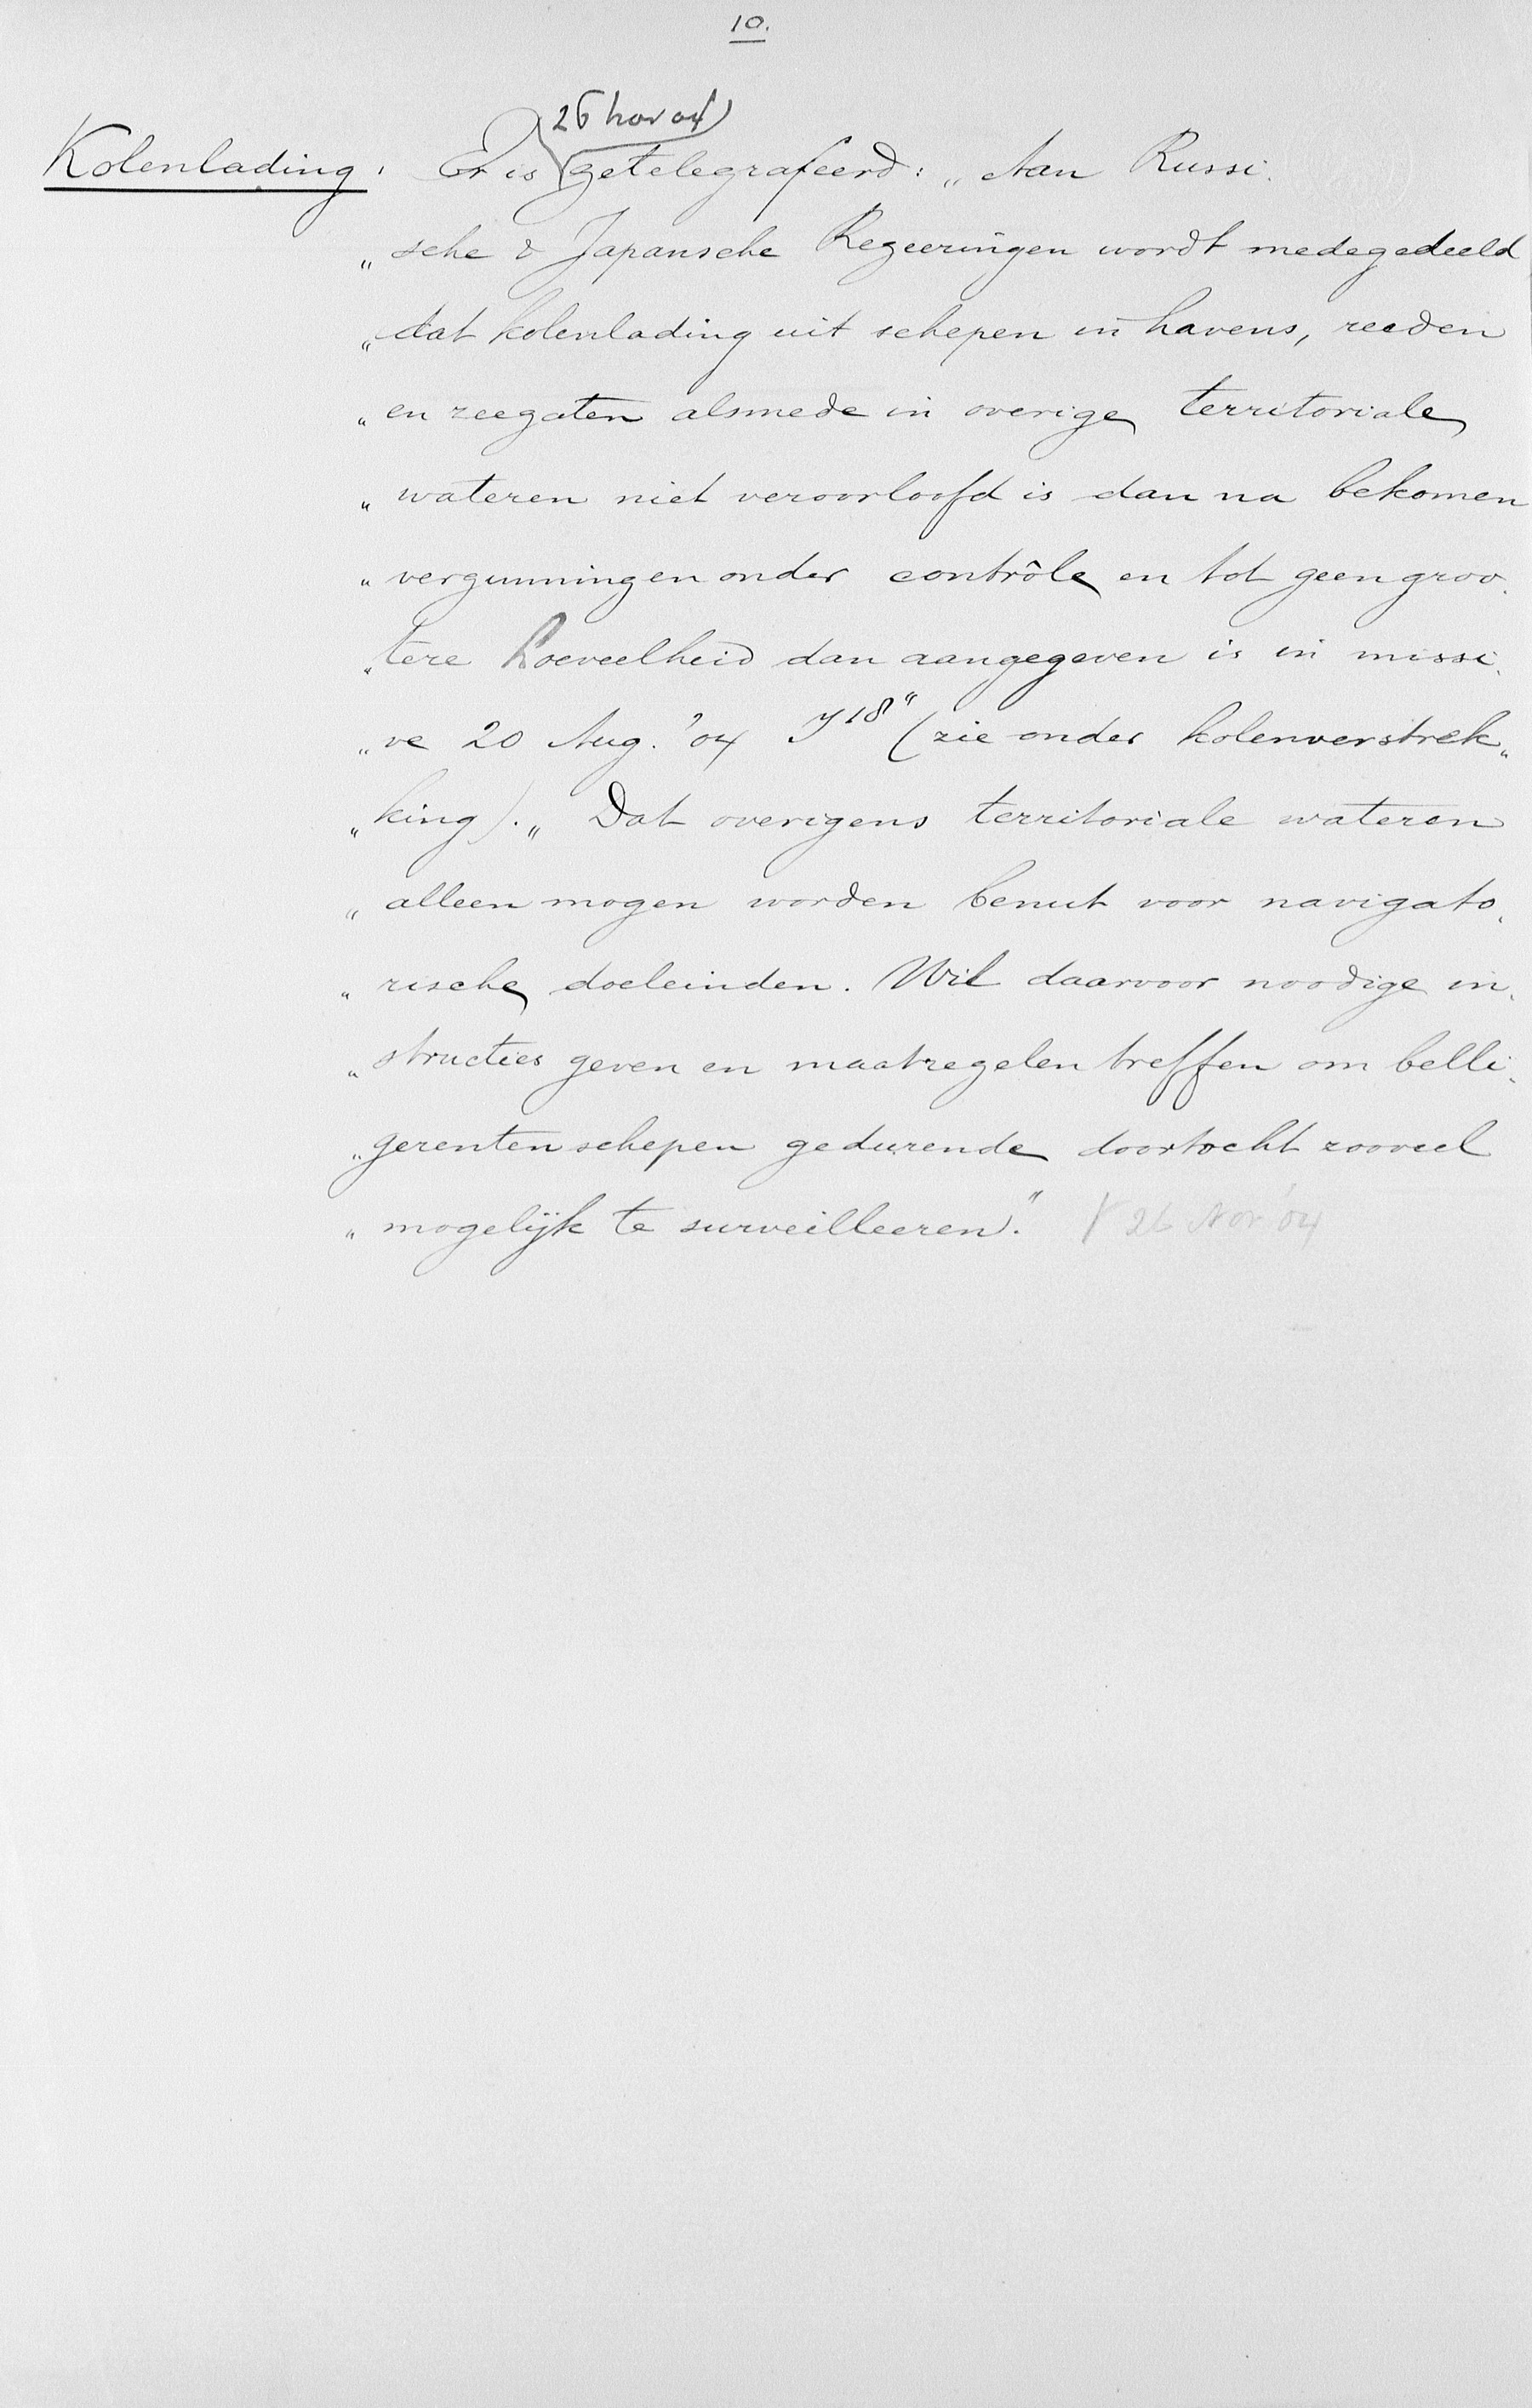 10.
26 nov 04
Kolenlading. Er is getelegrafeerd: „Aan Russi.
„sche & Japansche Regeeringen wordt medegedeeld
„dat kolenlading uit schepen in havens, reeden
„en zeegaten alsmede in overige territoriale
„wateren niet veroorloofd is dan na bekomen
„vergunningen onder contrôle en tot geen groo.
„tere hoeveelheid dan aangegeven is in missi.
„ve 20 Aug. '04 Y18" (zie onder kolenverstrek„
„king).„ Dat overigens territoriale wateren
„alleen mogen worden benut voor navigato.
„rische doeleinden. Wil daarvoor noodige in.
„structies geven en maatregelen treffen om belli.
„gerenten schepen gedurende doortocht zooveel
„mogelijk te surveilleeren." 26 Nov '04